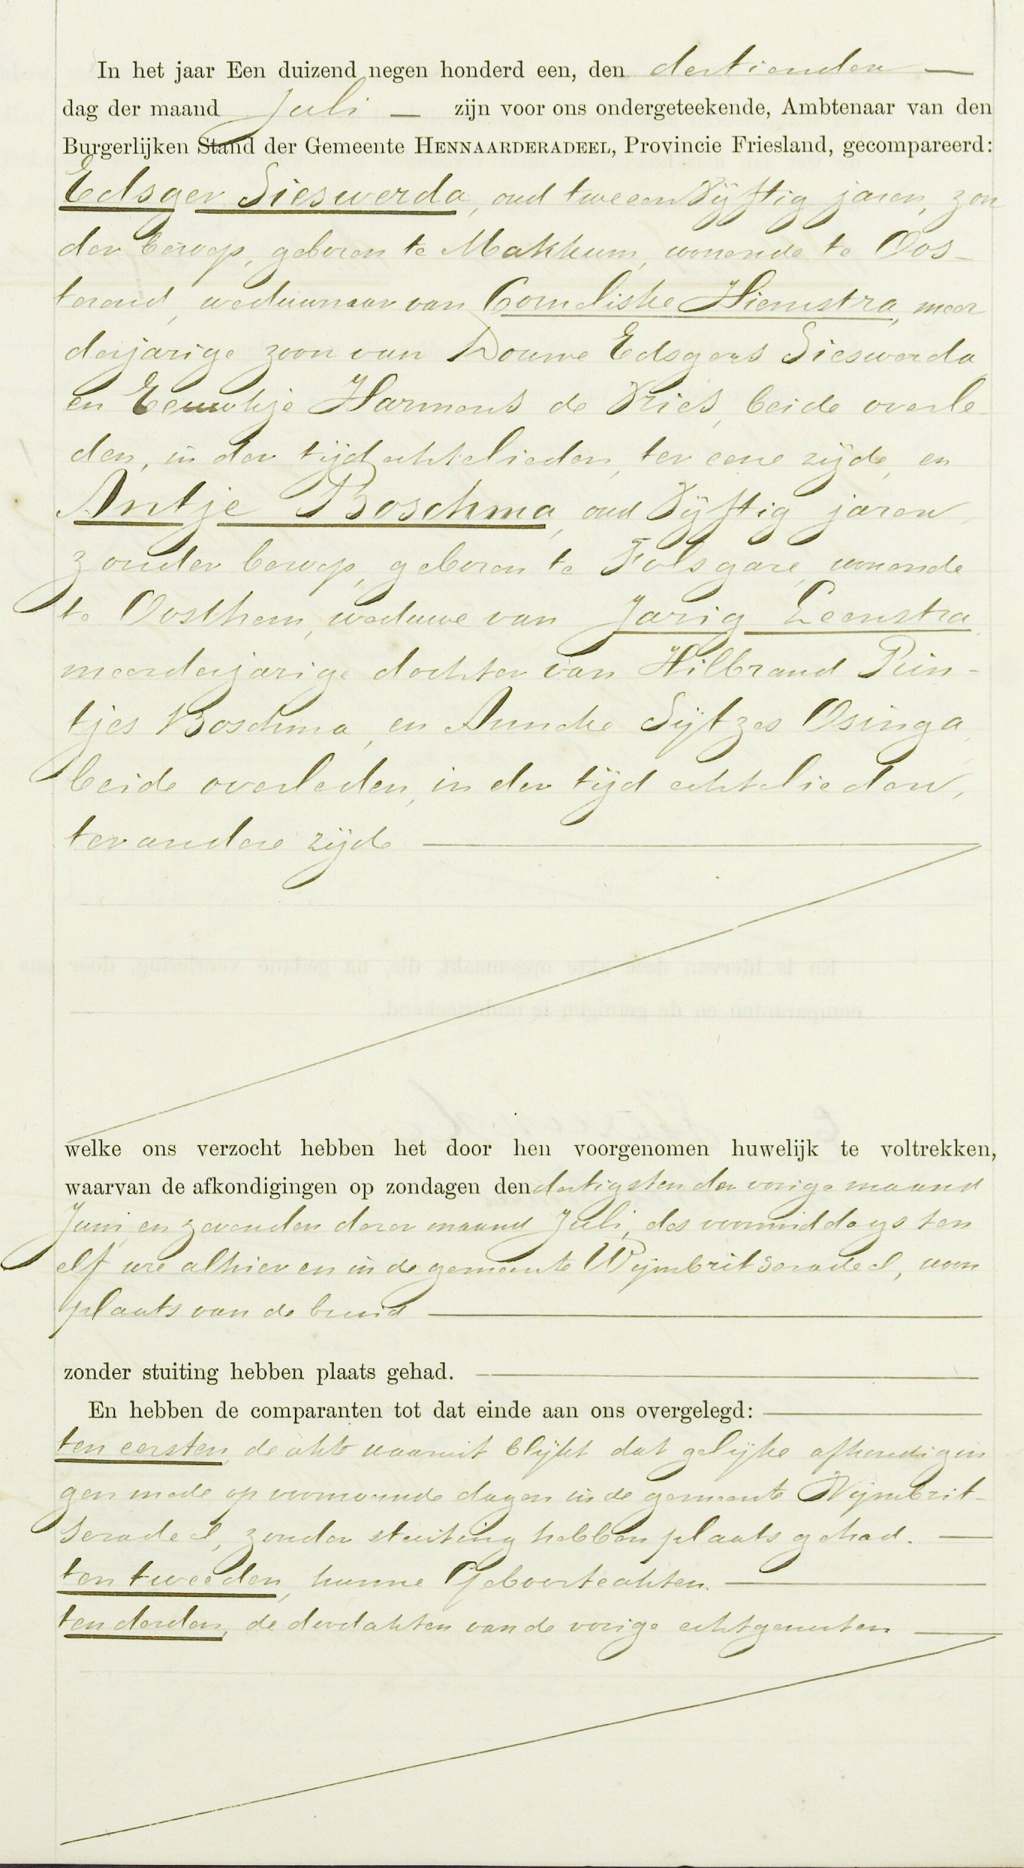 In het jaar Een duizend negen honderd een, den dertienden —
dag der maand Juli — zijn voor ons ondergeteekende, Ambtenaar van den
Burgerlijken Stand der Gemeente HENNAARDERADEEL, Provincie Friesland, gecompareerd:
Edsger Sieswerda, oud tweeenvijftig jaren, zon
der beroep, geboren te Makkum, wonende te Oos-
terend, weduwnaar van Corneliske Hiemstra, meer
derjarige zoon van Douwe Edsgers Sieswerda
en Eeuwkje Harmens de Vries, beide overle
den, in der tijd echtelieden, ter eene zijde, en
Antje Boschma, oud vijftig jaren
zonder beroep, geboren te Folsgare, wonende
te Oosthem, weduwe van Jarig Leenstra
meerderjarige dochter van Hilbrand Pein-
tjes Boschma, en Anneke Sijtzes Osinga,
beide overleden, in der tijd echtelieden,
ter andere zijde —
welke ons verzocht hebben het door hen voorgenomen huwelijk te voltrekken,
waarvan de afkondigingen op zondagen den dertigsten der vorige maand
Juni, en zevenden dezer maand Juli, des voormiddags ten
elf ure alhier en in de gemeente Wijmbritseradeel, woon
plaats van de bruid —
zonder stuiting hebben plaats gehad. —
En hebben de comparanten tot dat einde aan ons overgelegd: —
ten eersten, de akte waaruit blijkt dat gelijke afkondigin
gen mede op voornoemde dagen in de gemeente Wijmbrit-
seradeel, zonder stuiting hebben plaats gehad. —
ten tweeden, hunne Geboorteakten. —
ten derden, de doodakten van de vorige echtgenooten —